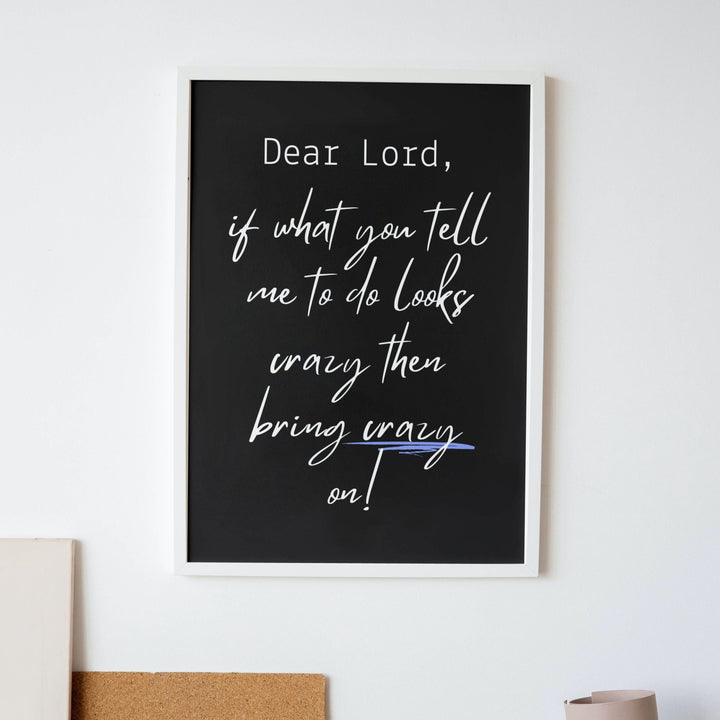 Dear Lord,
if what you tell
me to do looks
crazy then
bring crazy
on!